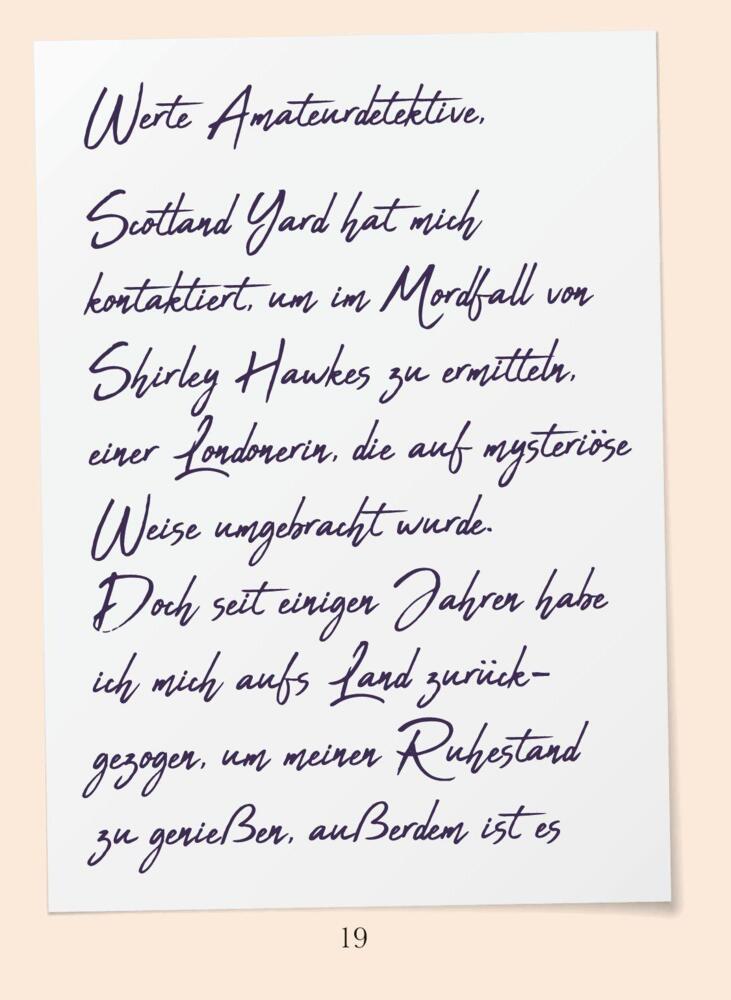 Werte Amateurdetektive,
Scotland Yard hat mich
kontaktiert, um im Mordfall von
Shirley Hawkes zu ermitteln,
einer Londonerin, die auf mysteriöse
Weise umgebracht wurde.
Doch seit einigen Jahren habe
ich mich aufs Land zurück-
gezogen, um meinen Ruhestand
zu genießen, außerdem ist es
19